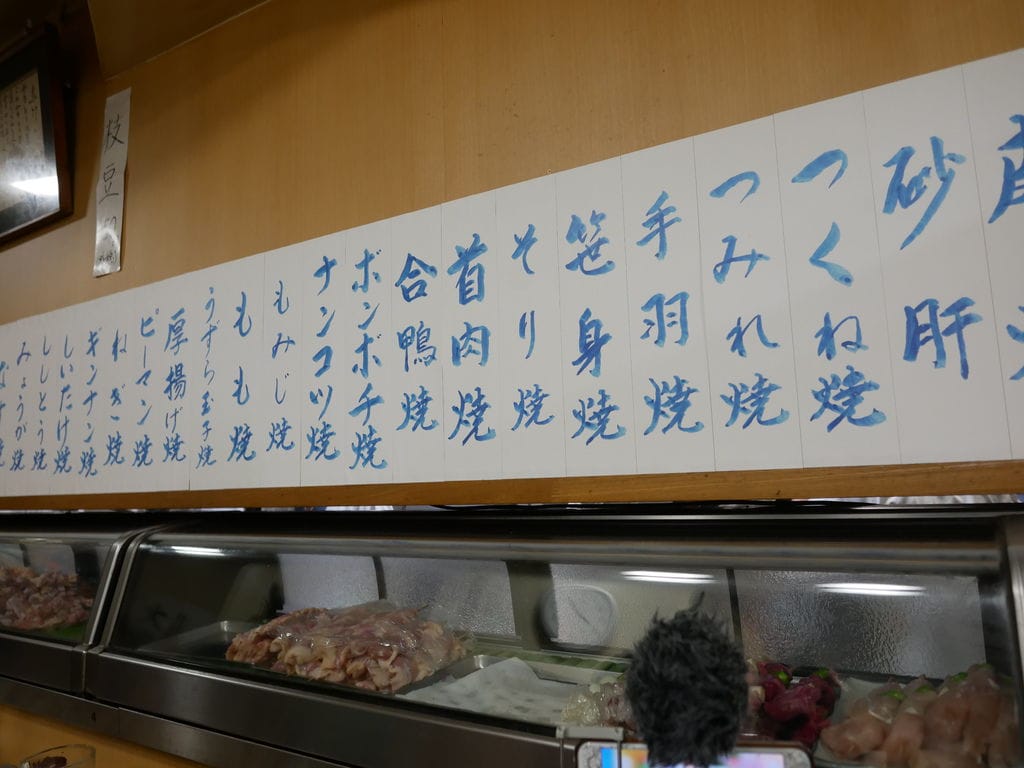 砂肝
つくね焼
つみれ焼
手羽焼
笹身焼
そり焼
首肉焼
合鴨焼
ボンボチ焼
ナンコツ焼
もみじ焼
もも焼
うずら玉子焼
厚揚げ焼
ピーマン焼
ねぎ焼
ギンナン焼
しいたけ焼
ししとう焼
みょうが焼
なす焼
枝豆